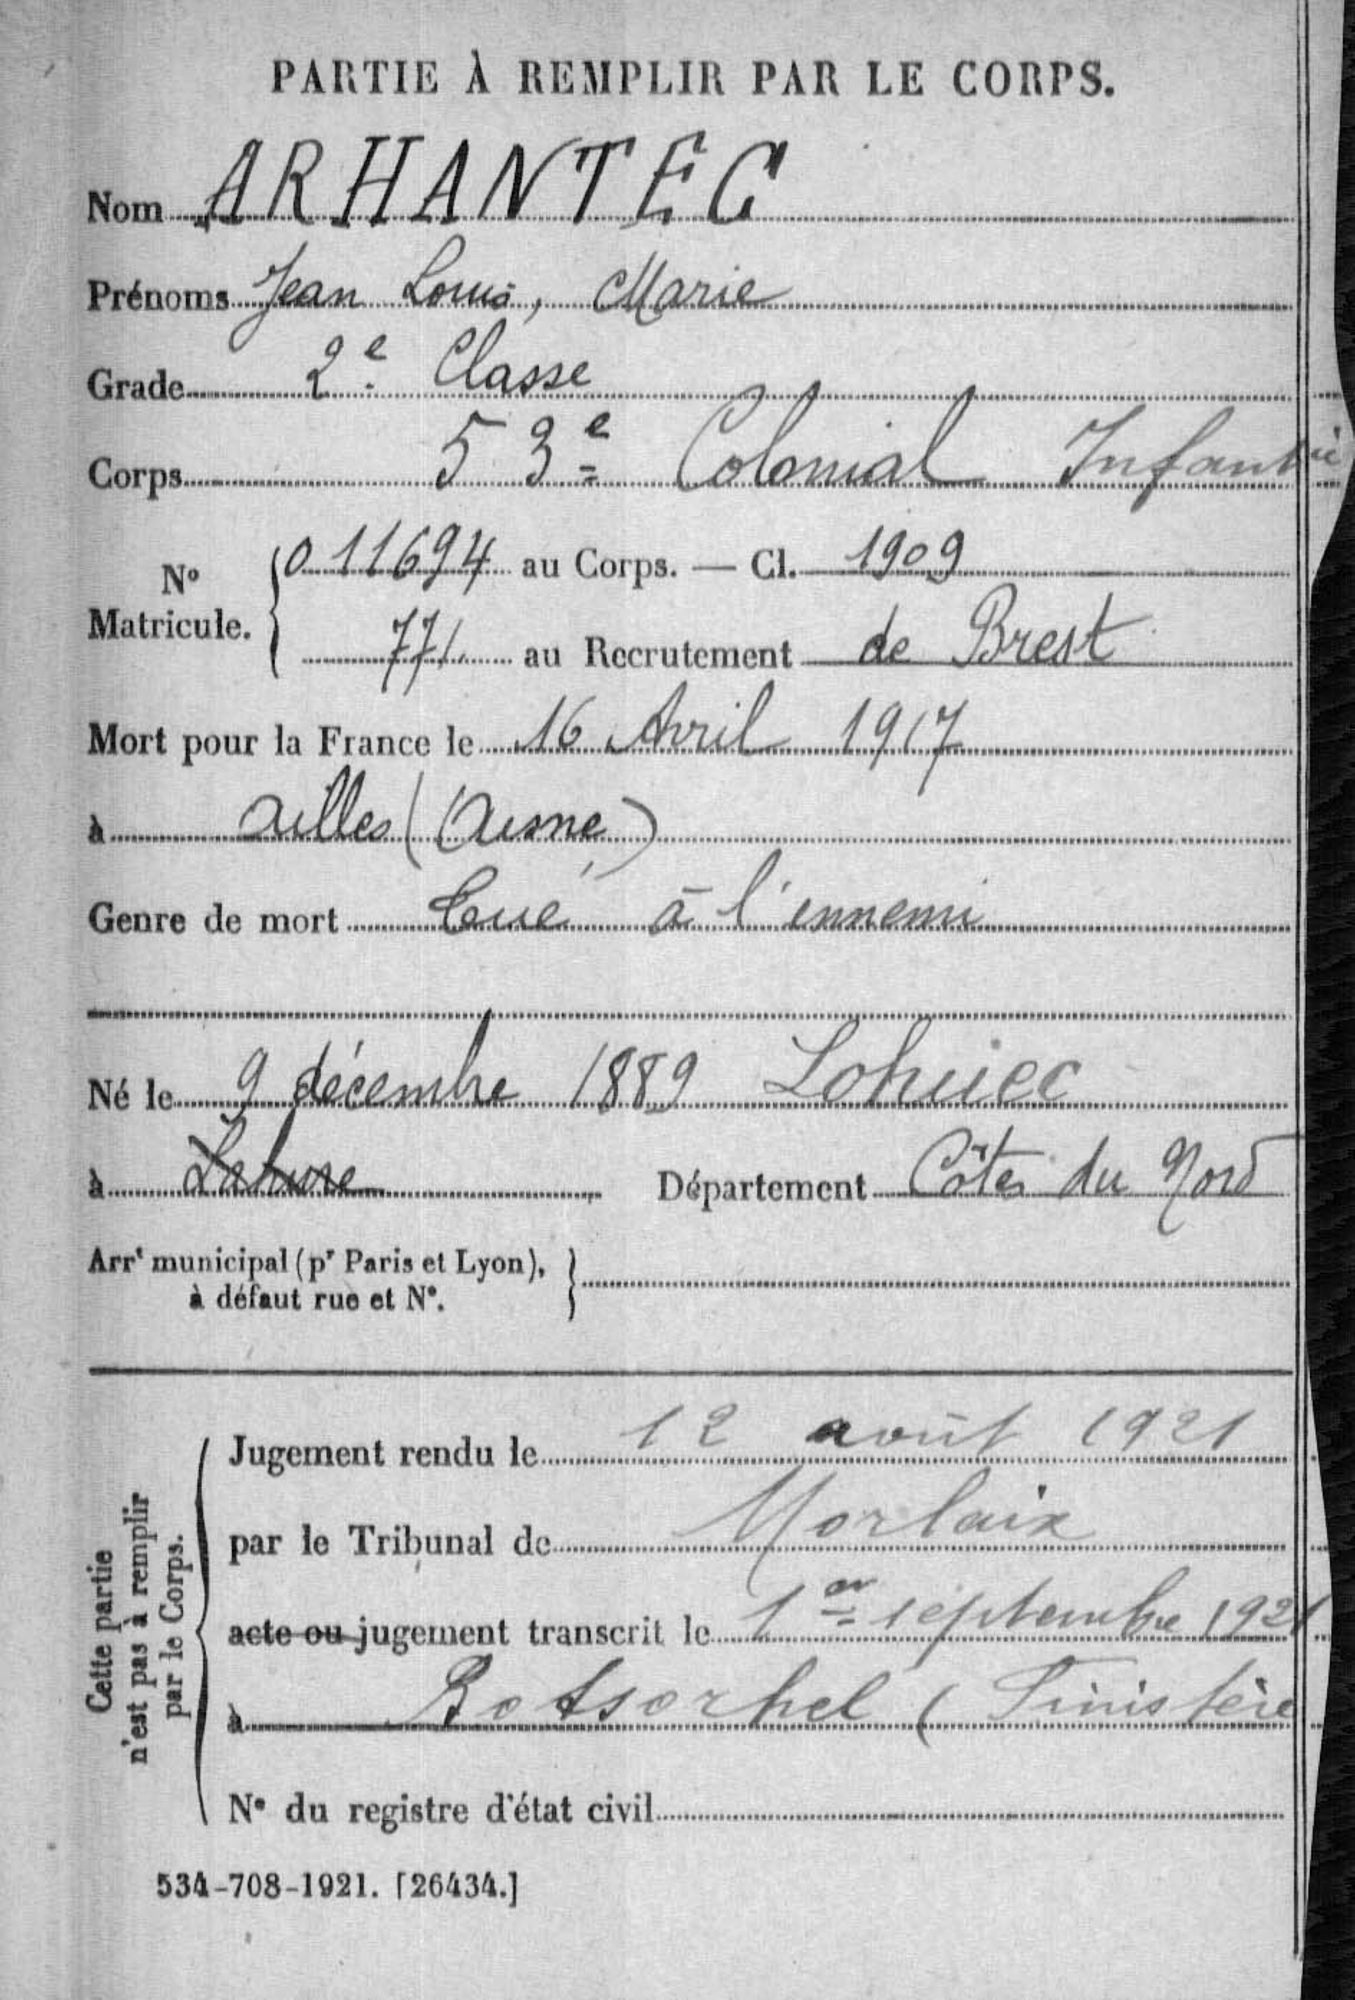 PARTIE À REMPLIR PAR LE CORPS.
Nom ARHANTEC
Prénoms Jean Louis, Marie
Grade 2e Classe
Corps 53e Colonial Infanterie
No Matricule. 011694 au Corps. — Cl. 1909
771. au Recrutement de Brest
Mort pour la France le 16 Avril 1917
à Ailles (Aisne)
Genre de mort Tué à l'ennemi
Né le 9 décembre 1889 Lohuec
à Département Côtes du Nord
Arrt municipal (pr Paris et Lyon),
à défaut rue et No.
Cette partie
n'est pas à remplir
par le Corps.
Jugement rendu le 12 août 1921
par le Tribunal de Morlaix
acte ou jugement transcrit le 1er septembre 1921
à Botsorhel (Finistère
No du registre d'état civil
534-708-1921. [26434.]